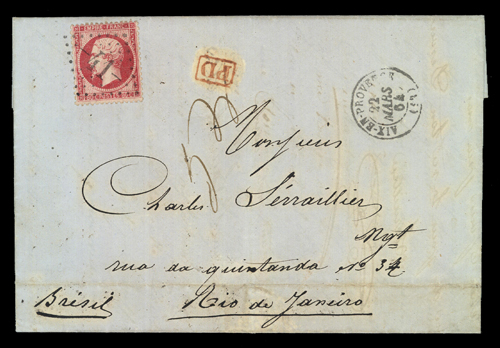 EMPIRE FRANC.
PD
AIX-EN-PROVENCE
22
MARS
64
Monsieur
Charles Sérraillier
Ngt
rua da quintanda no 34
Brésil Rio de Janeiro